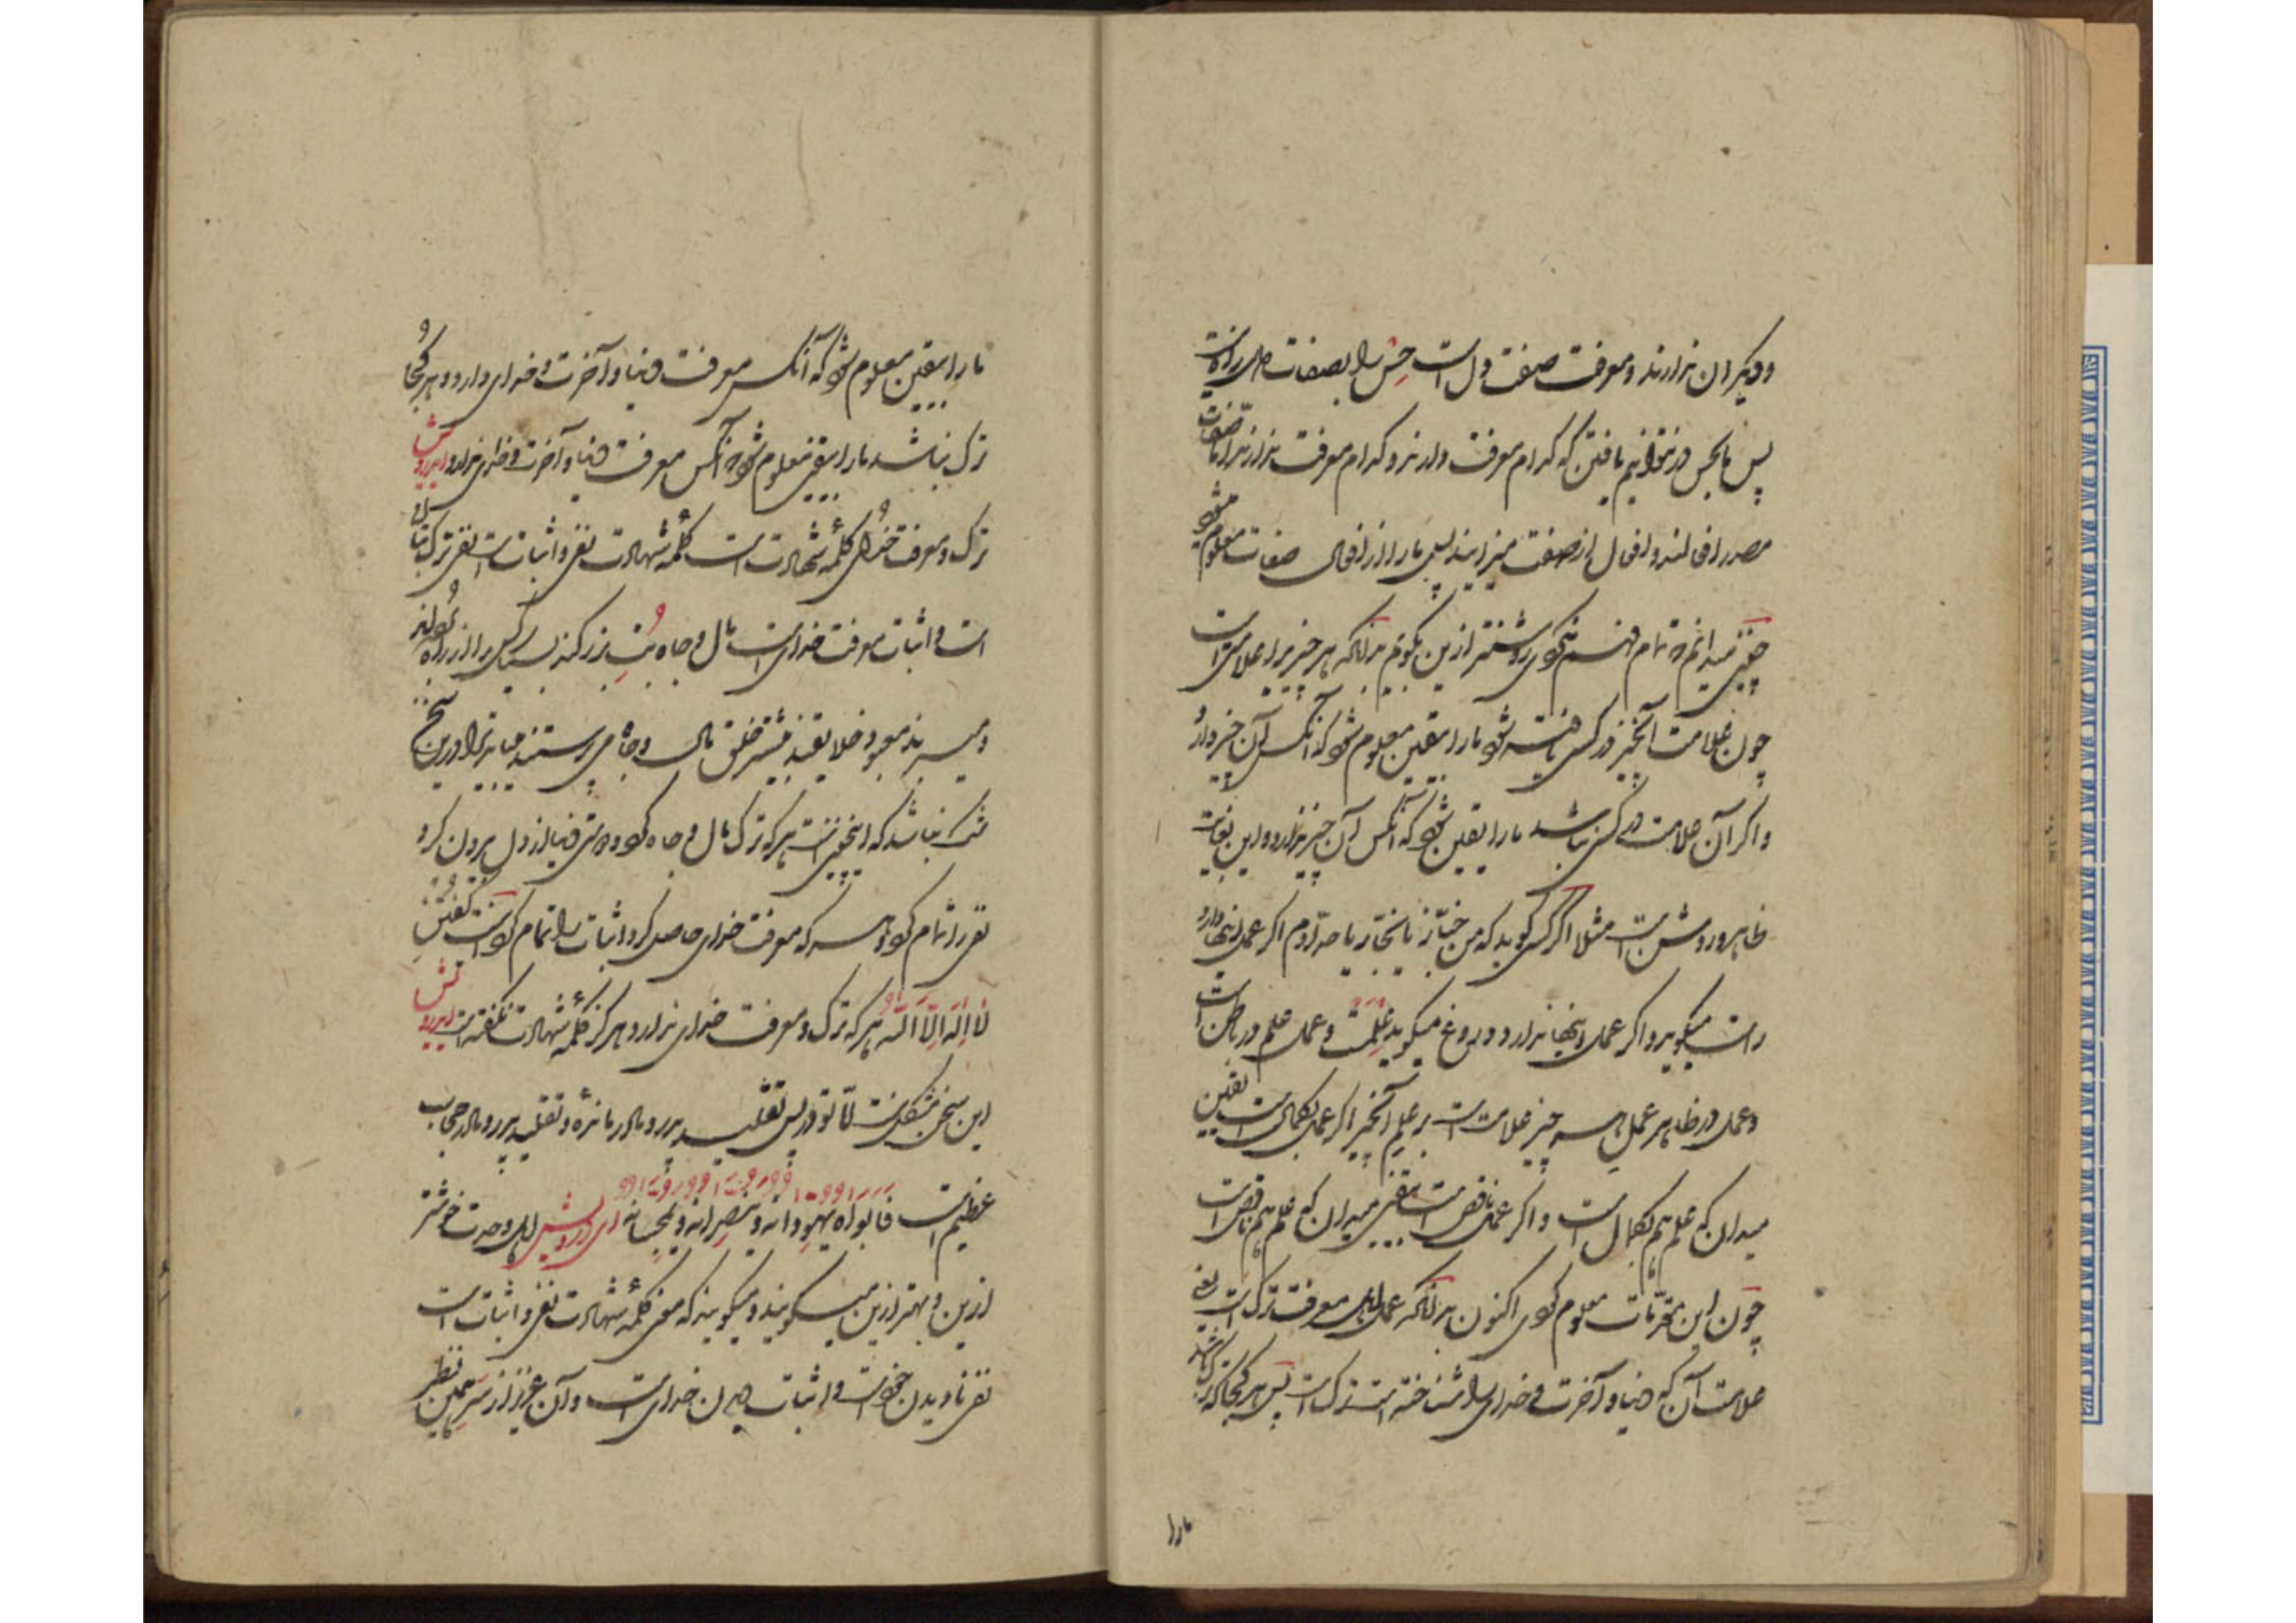 و دیگران ندارند و معرفت صفت دل است حس را بصفات دل راه نیست
پس ما بحس در نتوانیم یافتن که کدام معرفت دارند و کدام معرفت ندارند اما صفات
مصدر افعالند و افعال از صفت میزایند پس ما را از افعال صفات معلوم میشود
چنین میدانم که تمام فهم نکردی روشنتر ازین بگویم بدانکه هر چیز را علامتی است
چون علامت آنچیز در کسی یافته شود ما را بیقین معلوم شود که آنکس آن چیز دارد
و اگر آن علامت در کسی نباشد ما را یقین شود که آنکس آن چیز ندارد و این بغایت
ظاهر و روشن است مثلا اگر کسی گوید که من خبازم یا نجارم یا حدادم اگر عمل اینها دارد
راست میگوید و اگر عمل اینها ندارد دروغ میگوید علمست و عمل علم در باطن است
و عمل در ظاهر عمل هر چیز علامت است بر علم آنچیز اگر عمل بکمال است بیقین
میدان که علم هم بکمال است و اگر عمل ناقص است بیقین میدان که علم هم ناقص است
چون این مقدمات معلوم کردی اکنون بدانکه عمل اهل معرفت ترک است یعنی
علامت آن که دنیا و آخرت و خدای را شناخته است ترک است پس هر کجا که ترک باشد
ما را
ما را بیقین معلوم شود که آنکس معرفت دنیا و آخرت و خدای دارد و هر کجا
ترک نباشد ما را بیقین معلوم شود که آنکس معرفت دنیا و آخرت و خدای ندارد ای درویش
ترک و معرفت خدای کلمه شهادت است کلمه شهادت نفی و اثبات است نفی ترک بتان
است و اثبات معرفت خدای است مال و جاه بت بزرگند بسیار کس را از راه برده‌اند
و میبرند معبود خلایقند بیشتر خلق مال و جاه می پرستند میباید ترا درین سخن
شک نباشد که اینچنین است هر که ترک مال و جاه کرد و دوستی دنیا از دل بیرون کرد
نفی را تمام کرد و هر که معرفت خدای حاصل کرد اثبات را تمام کرد اینست گفتن
لا اله الا الله هر که ترک و معرفت خدای ندارد هرگز کلمه شهادت نگفته است ای درویش
این سخن مشکل نیست اما تو در پس تقلید پدر و مادر مانده و تقلید پدر و مادر حجاب
عظیم است فابواه یهودانه و ینصرانه و یمجسانه ای درویش اهل وحدت خوشتر
ازین و بهتر ازین میگویند و میگویند که معنی کلمه شهادت نفی و اثبات است
نفی نادیدن خود است و اثبات دیدن خدای است و آن عزیز از سر همین نظر